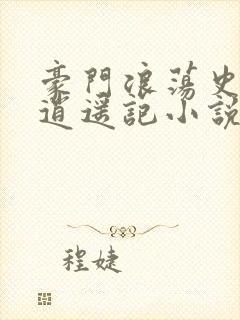 豪門浪蕩史
逍遥記小説
程婕